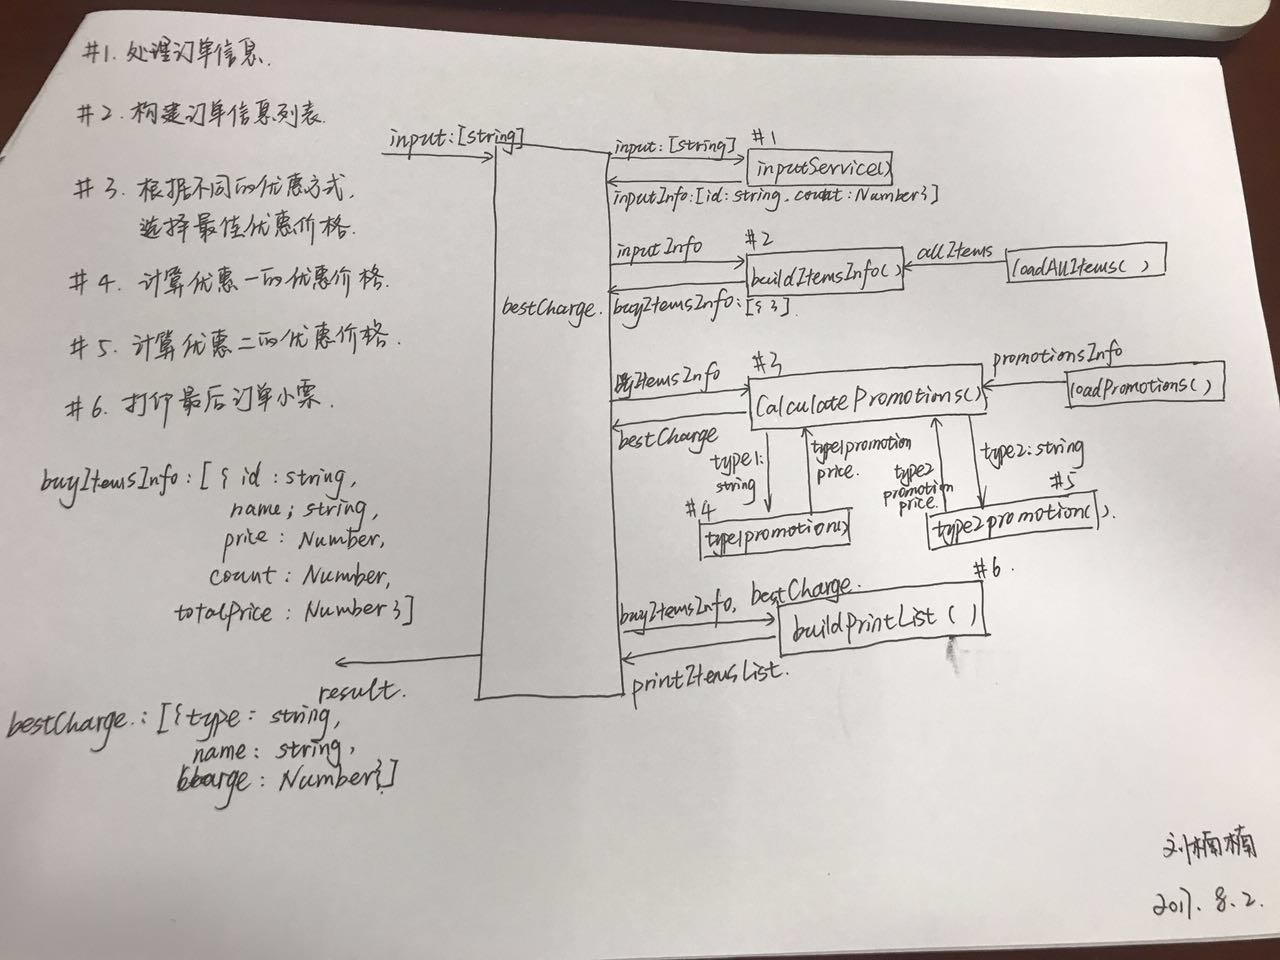 #1. 处理订单信息.
#2. 构建订单信息列表.
#3. 根据不同的优惠方式,
选择最佳优惠价格.
#4. 计算优惠一的优惠价格.
#5. 计算优惠二的优惠价格.
#6. 打印最后订单小票.
buyItemsInfo: [{ id : string,
name; string,
price : Number,
count : Number,
totalPrice : Number }]
input: [string]
bestCharge.
result.
input: [string]
#1
inputService()
inputInfo:[id: string, count: Number}]
inputInfo
#2
buildItemsInfo()
allItems
loadAllItems( )
buyItemsInfo: [{ }].
ItemsInfo
#3
CalculatePromotions()
promotionsInfo
loadPromotions( )
bestCharge
type1:
string
type1promotion
price.
type2
promotion
price.
type2: string
#4
type1promotion()
#5
type2promotion().
buyItemsInfo, bestCharge.
#6.
buildPrintList ( )
printItemsList.
bestCharge.: [{type: string,
name: string,
: Number}]
刘楠楠
2017. 8. 2.